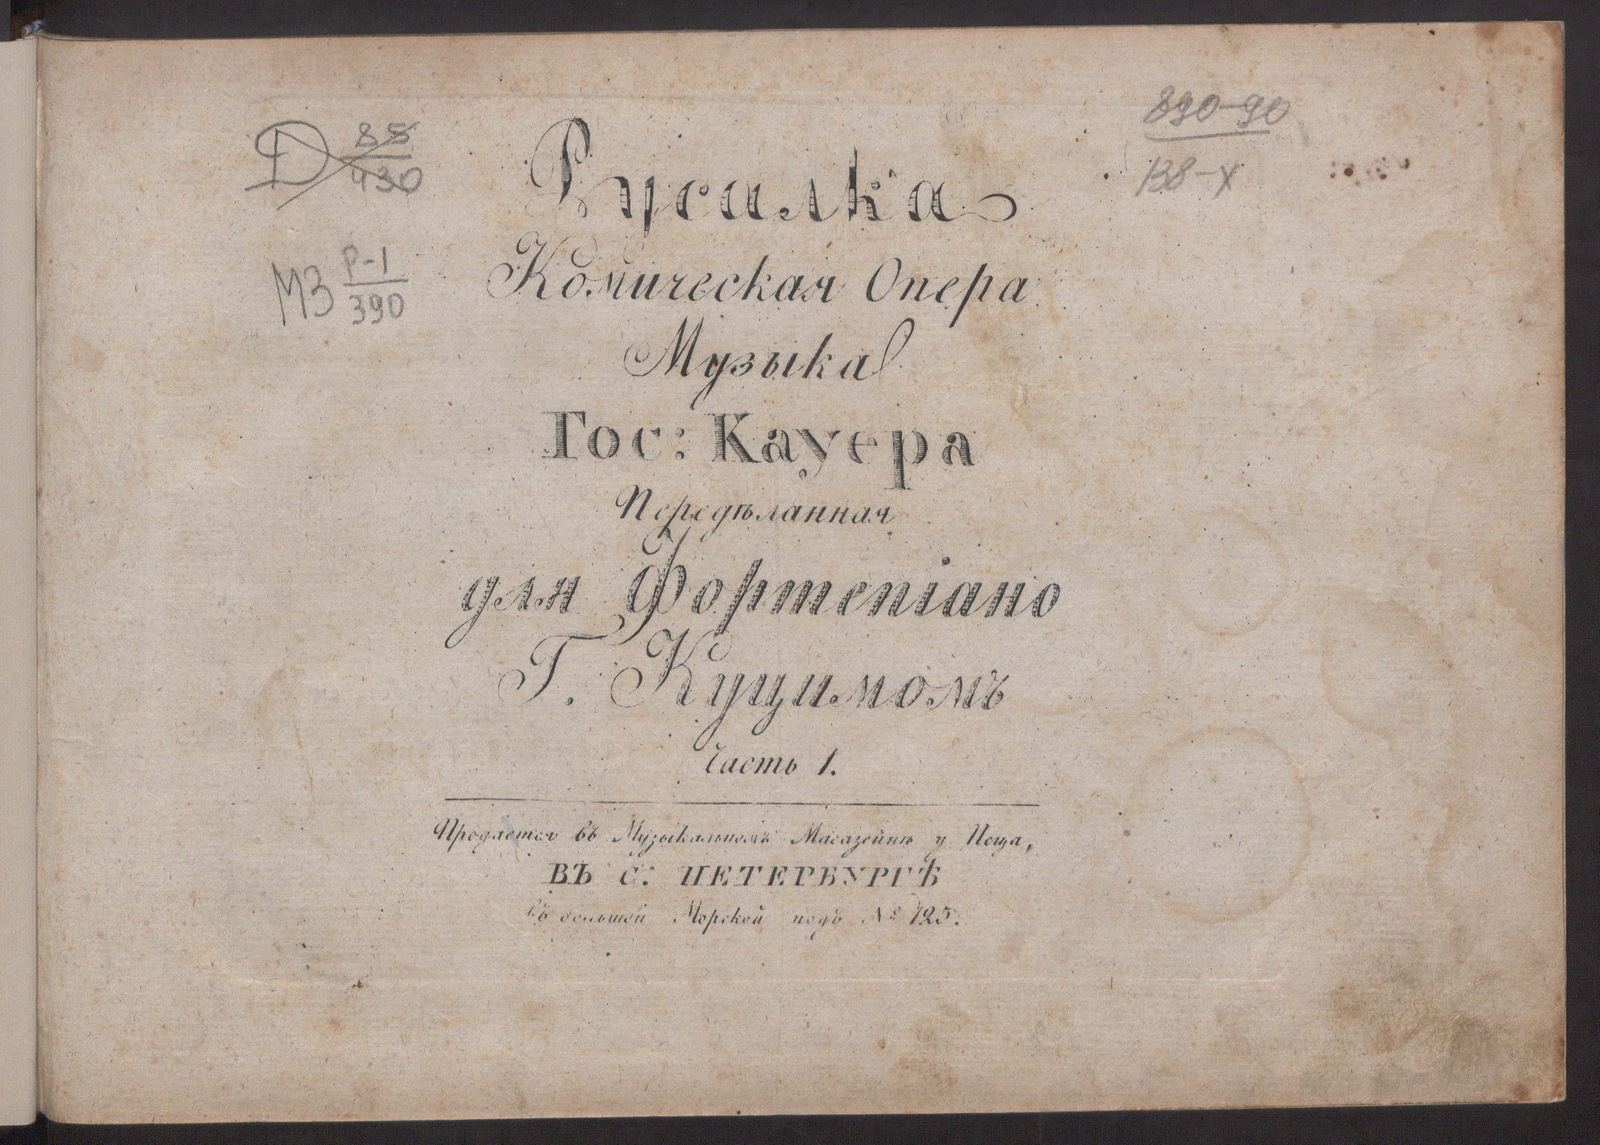 D 85/430
МЗ Р-1/390
890-90
138-х
Русалка
Комическая Опера
Музыка
Гос: Кауера
Передѣланная
для Фортепіано
Г. Куцимомъ
Часть 1.
Продается въ Музыкальномъ Магазейнѣ у Пеца,
ВЪ С: ПЕТЕРБУРГѢ
въ большой Морской подъ № 125.